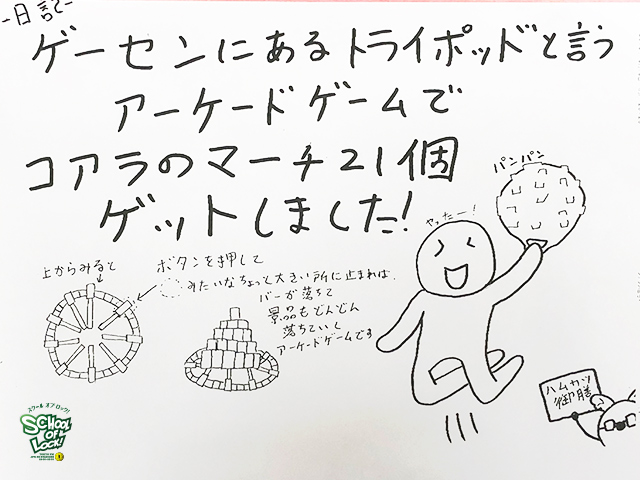 -日記-
ゲーセンにあるトライポッドと言う
アーケードゲームで
コアラのマーチ21個
ゲットしました!
パンパン
やったー!
上からみると
ボタンを押して
みたいなちょっと大きい所に止まれば、
バーが落ちて
景品もどんどん
落ちていく
アーケードゲームです
ハムカツ
御膳
スクール オブ ロック!
SCHOOL
OF
LOCK!